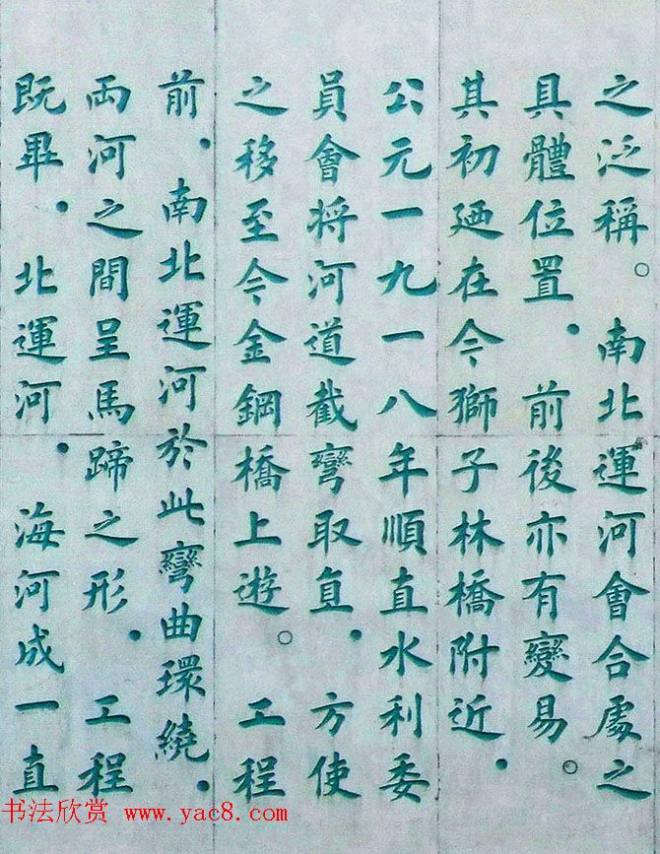 之泛稱。南北運河會合處之
具體位置．前後亦有變易。
其初廼在今獅子林橋附近．
公元一九一八年順直水利委
員會将河道截彎取直．方使
之移至今金鋼橋上遊。工程
前．南北運河於此彎曲環繞．
兩河之間呈馬蹄之形．工程
既畢．北運河．海河成一直
书法欣赏 www.yac8.com